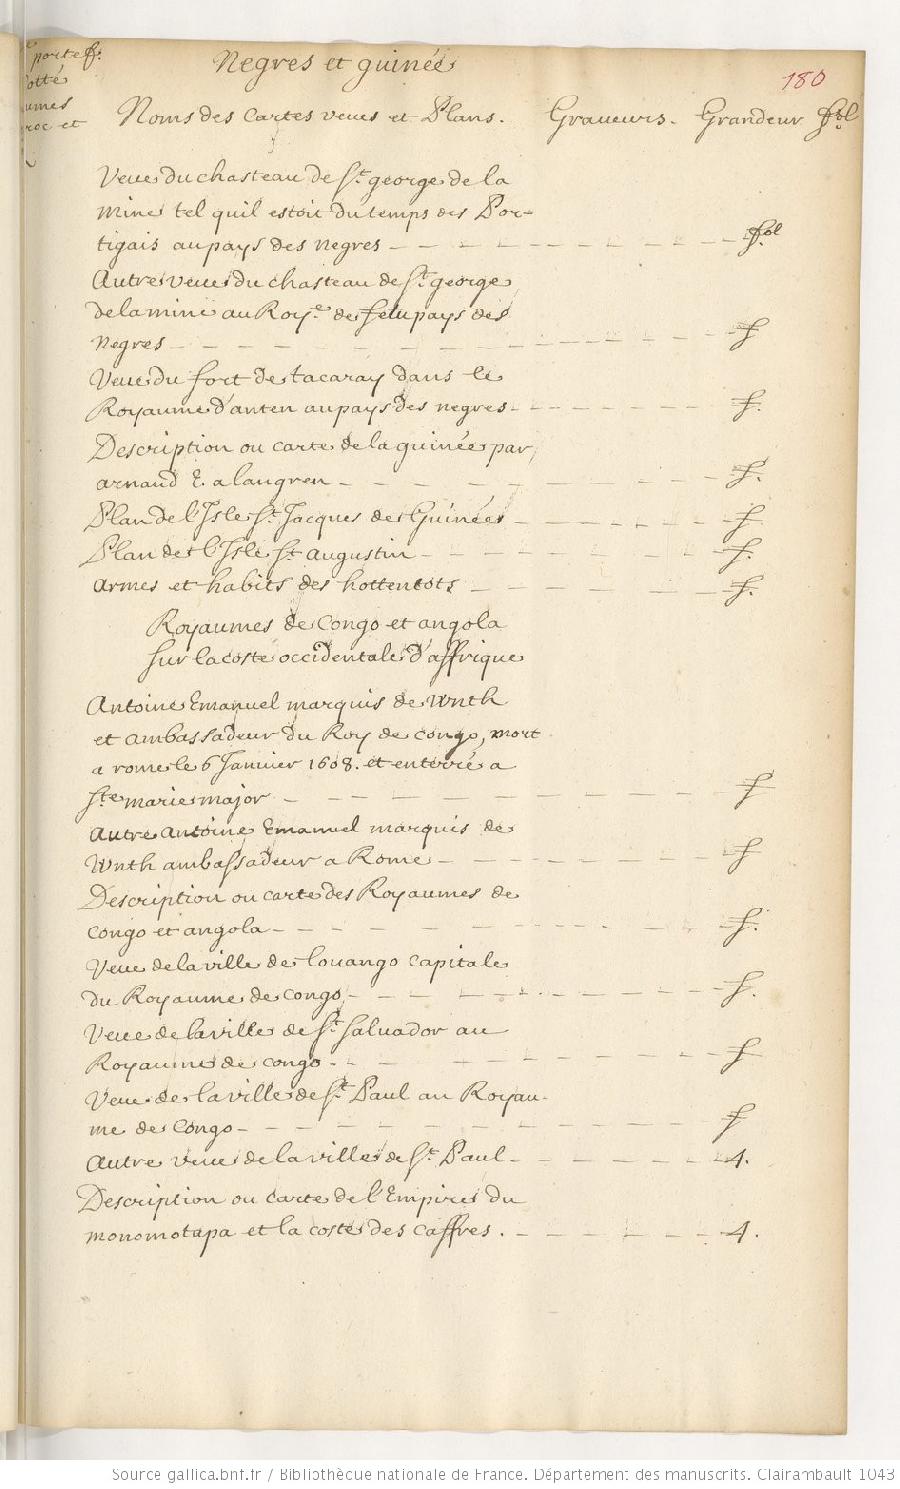 portef.
otté
umes
roc et
Negres et guinée
180
Noms des cartes veues et Plans. Graueurs. Grandeur fol
Veue du chasteau de St. george de la
mine tel quil estoit du temps des Por-
tigais au pays des negres - - - - - - - - - - fol.
Autre veue du chasteau de St. george
de la mine au Roye. de fetu pays des
negres - - - - - - - - - - f
Veue du fort de tacaray dans le
Royaume d'anten au pays des negres - - - - - - f.
Description ou carte de la guinée par
arnaud F. a langren - - - - - - - - f.
Plan de l'Isle St. Jacques de Guinée - - - - - - f
Plan de l'Isle St augustin - - - - - - - - f.
armes et habits des hottentots - - - - - - f.
Royaumes de Congo et angola
sur la coste occidentale d'affrique
Antoine Emanuel marquis de Wnth
et ambassadeur du Roy de congo, mort
a rome le 6 Janvier 1608. et enterré a
Ste marie major - - - - - - - - - - f
autre antoine Emanuel marquis de
Wnth ambassadeur a Rome - - - - - - - - f
Description ou carte des Royaumes de
congo et angola - - - - - - - - - - f.
Veue de la ville de louango capitale
du Royaume de congo - - - - - - - - - f.
Veue de la ville de St. saluador au
Royaume de congo - - - - - - - - f
Veue de la ville de St. Paul au Royau-
me de congo - - - - - - - - - - f
autre veue de la ville de St. Paul - - - - - - 4.
Description ou carte de l'Empire du
monomotapa et la coste des caffres. - - - - - - 4.
Source gallica.bnf.fr / Bibliothèque nationale de France. Département des manuscrits. Clairambault 1043